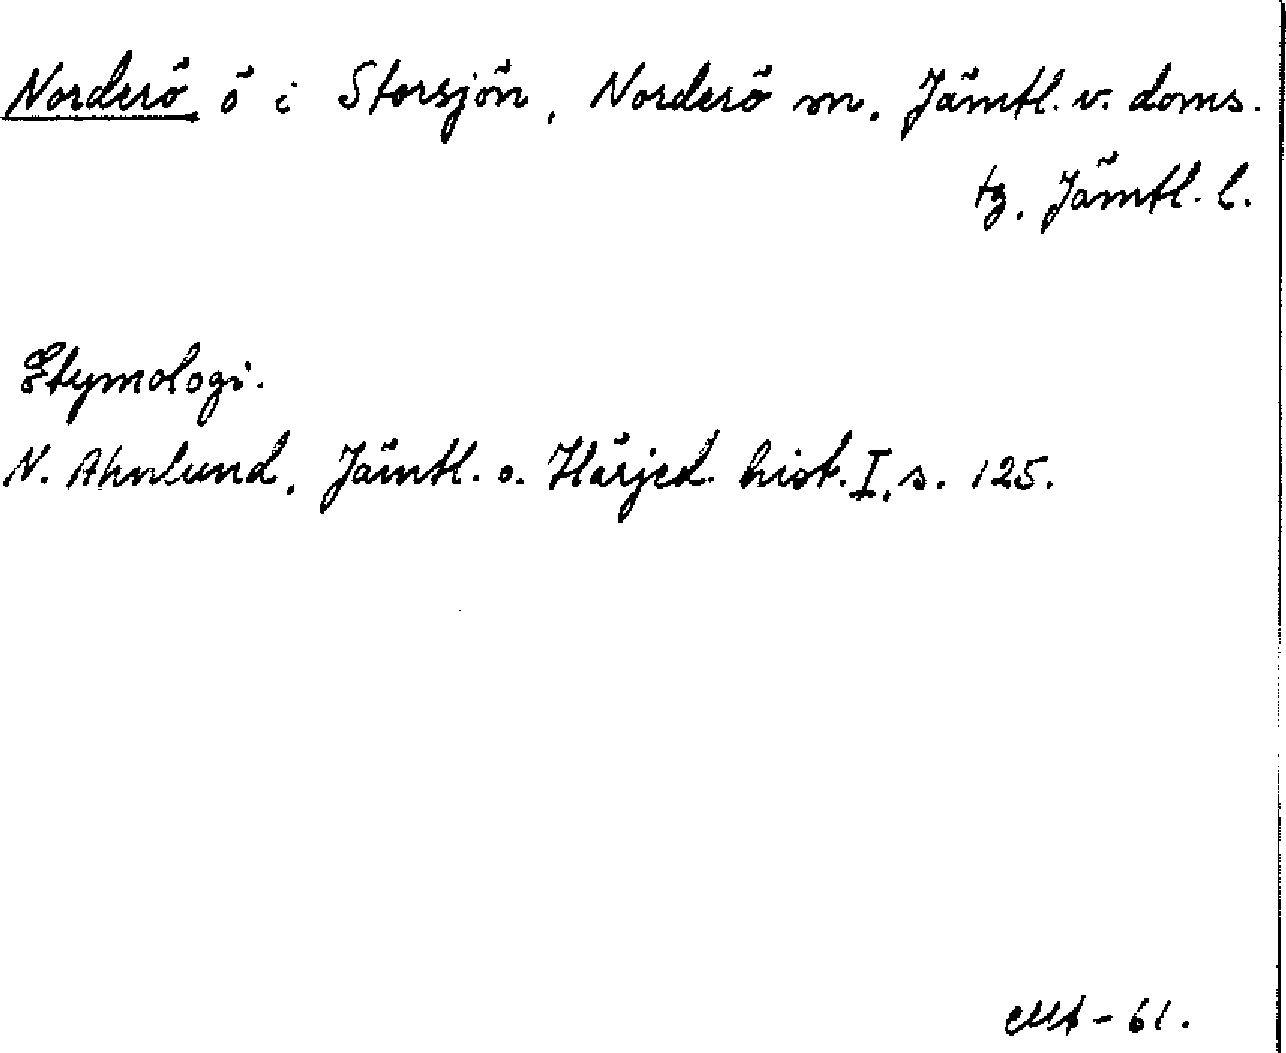 Norderö ö i Storsjön, Norderö sn. Jämtl. v. doms.
tg. Jämtl. l.
Etymologi.
N. Ahnlund, Jämtl. o. Härjed. hist. I, s. 125.
-61.